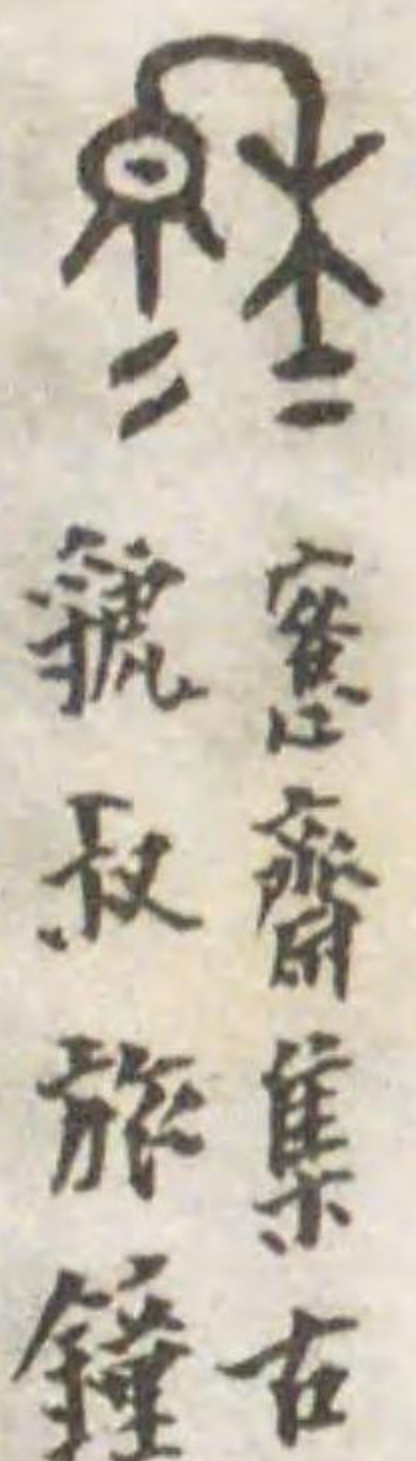 愙齋集古
虢叔旅鐘